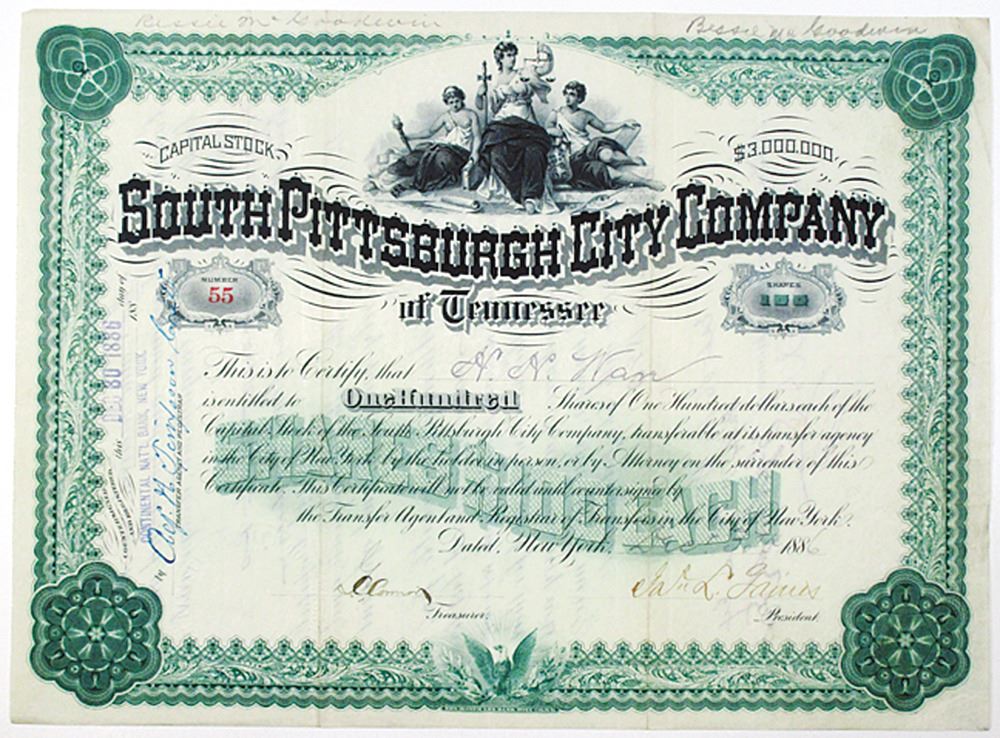 Bessie Mc Goodwin
Bessie Mc Goodwin
CAPITAL STOCK.
$3.000.000.
SOUTH PITTSBURGH CITY COMPANY
of Tennessee
NUMBER
55
SHARES
100
This is to Certify, that
is entitled to One Hundred Shares of One Hundred dollars each of the
Capital Stock of the South Pittsburgh City Company, transferable at its transfer agency
in the City of New York by the holder in person, or by Attorney on the surrender of this
Certificate. This Certificate will not be valid until countersigned by
the Transfer Agent and Registrar of Transfers in the City of New York.
Dated, New York 1886
Jas. L. Gaines
Treasurer.
President.
COUNTERSIGNED
AND REGISTERED this DEC 30 1886 day of 188
CONTINENTAL NAT'L BANK, NEW YORK,
by
TRANSFER AGENT AND REGISTRAR